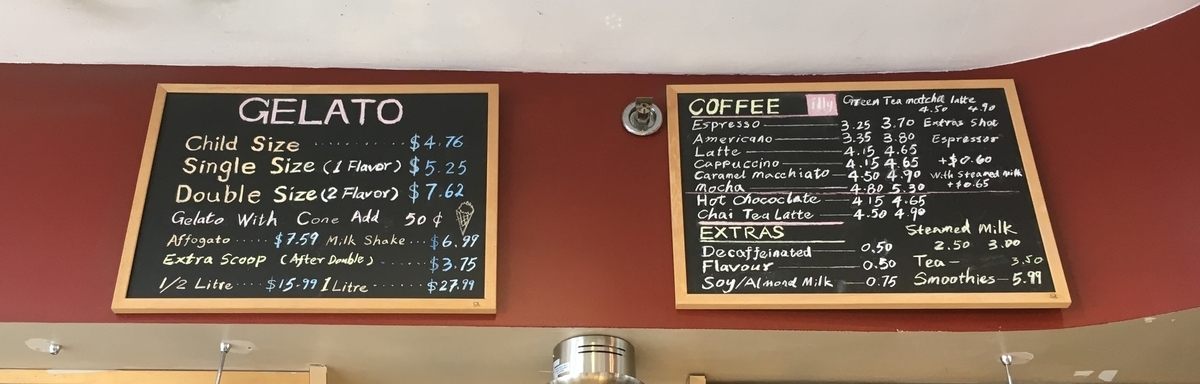 GELATO
Child Size ......... $4.76
Single Size (1 Flavor) $5.25
Double Size (2 Flavor) $7.62
Gelato With Cone Add 50¢
Affogato ..... $7.59 Milk Shake ... $6.99
Extra Scoop (After Double) ....... $3.75
1/2 Litre .... $15.99 1 Litre ...... $27.99
COFFEE illy Green Tea matcha latte
4.50 4.90
Espresso 3.25 3.70 Extras Shot
Americano 3.35 3.80 Espressor
Latte 4.15 4.65
Cappuccino 4.15 4.65 +$0.60
Caramel macchiato 4.50 4.90 With Steamed milk
Mocha 4.80 5.30 +$0.65
Hot Chococlate 4.15 4.65
Chai Tea Latte 4.50 4.90
EXTRAS Steamed Milk
2.50 3.00
Decaffeinated 0.50
Tea — 3.50
Flavour 0.50
Soy/Almond Milk 0.75 Smoothies — 5.99